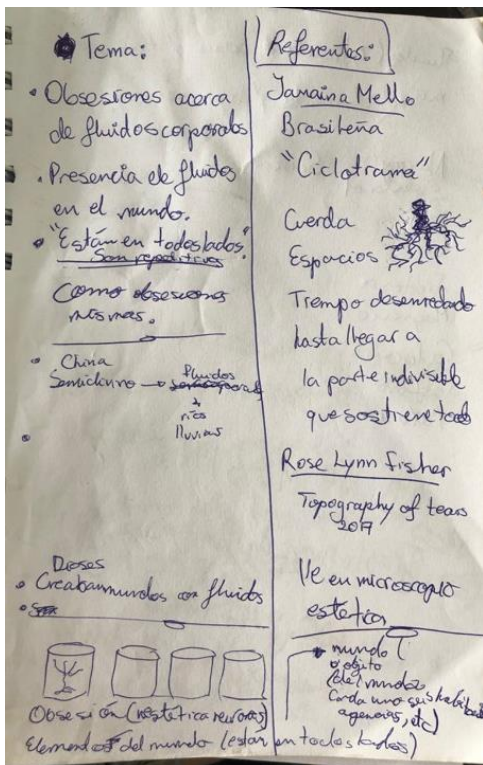 Tema:
• Obsesiones acerca
de fluidos corporales
• Presencia de fluidos
en el mundo.
• "Están en todos lados".
Son repetitivos
Como obsesiones
mismas.
• China
fluidos
ríos
lluvias
Dioses
• Creaban mundos con fluidos
Obsesión (
Elementos del mundo (están en todos lados)
Referentes:
Janaina Mello
Brasileña
"Ciclotrama"
Cuerda
Espacios
Tiempo desenredado
hasta llegar a
la parte indivisible
que sostiene todo
Rose Lynn Fisher
Topography of tears
2017
Ve en microscopio
estética
mundo (
o objeto
(del mundo
Cada uno
agencias, etc)